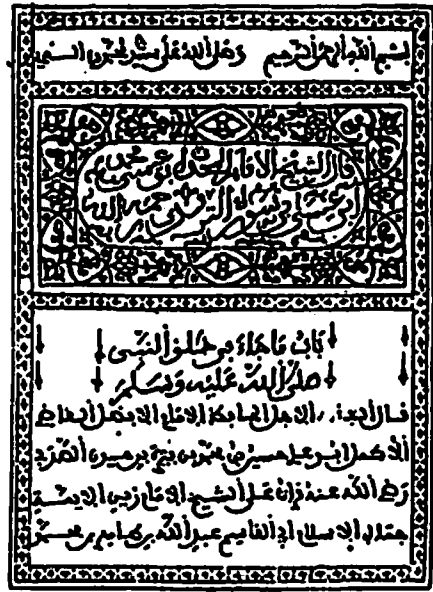 بسم الله الرحمن الرحيم وصلى الله على
قال الشيخ الامام المحدث ابو عيسى محمد بن
عيسى بن سورة الترمذي رحمه الله
باب ما جاء في خلق النبي
صلى الله عليه وسلم
قال الاجل الحافظ الامام الافضل
الاكمل ابو علي حسين بن محمد بن
رضي الله عنه قرات على الشيخ الامام زين الايمة
جمال الاسلام ابي القاسم عبد الله بن طاهر بن محمد